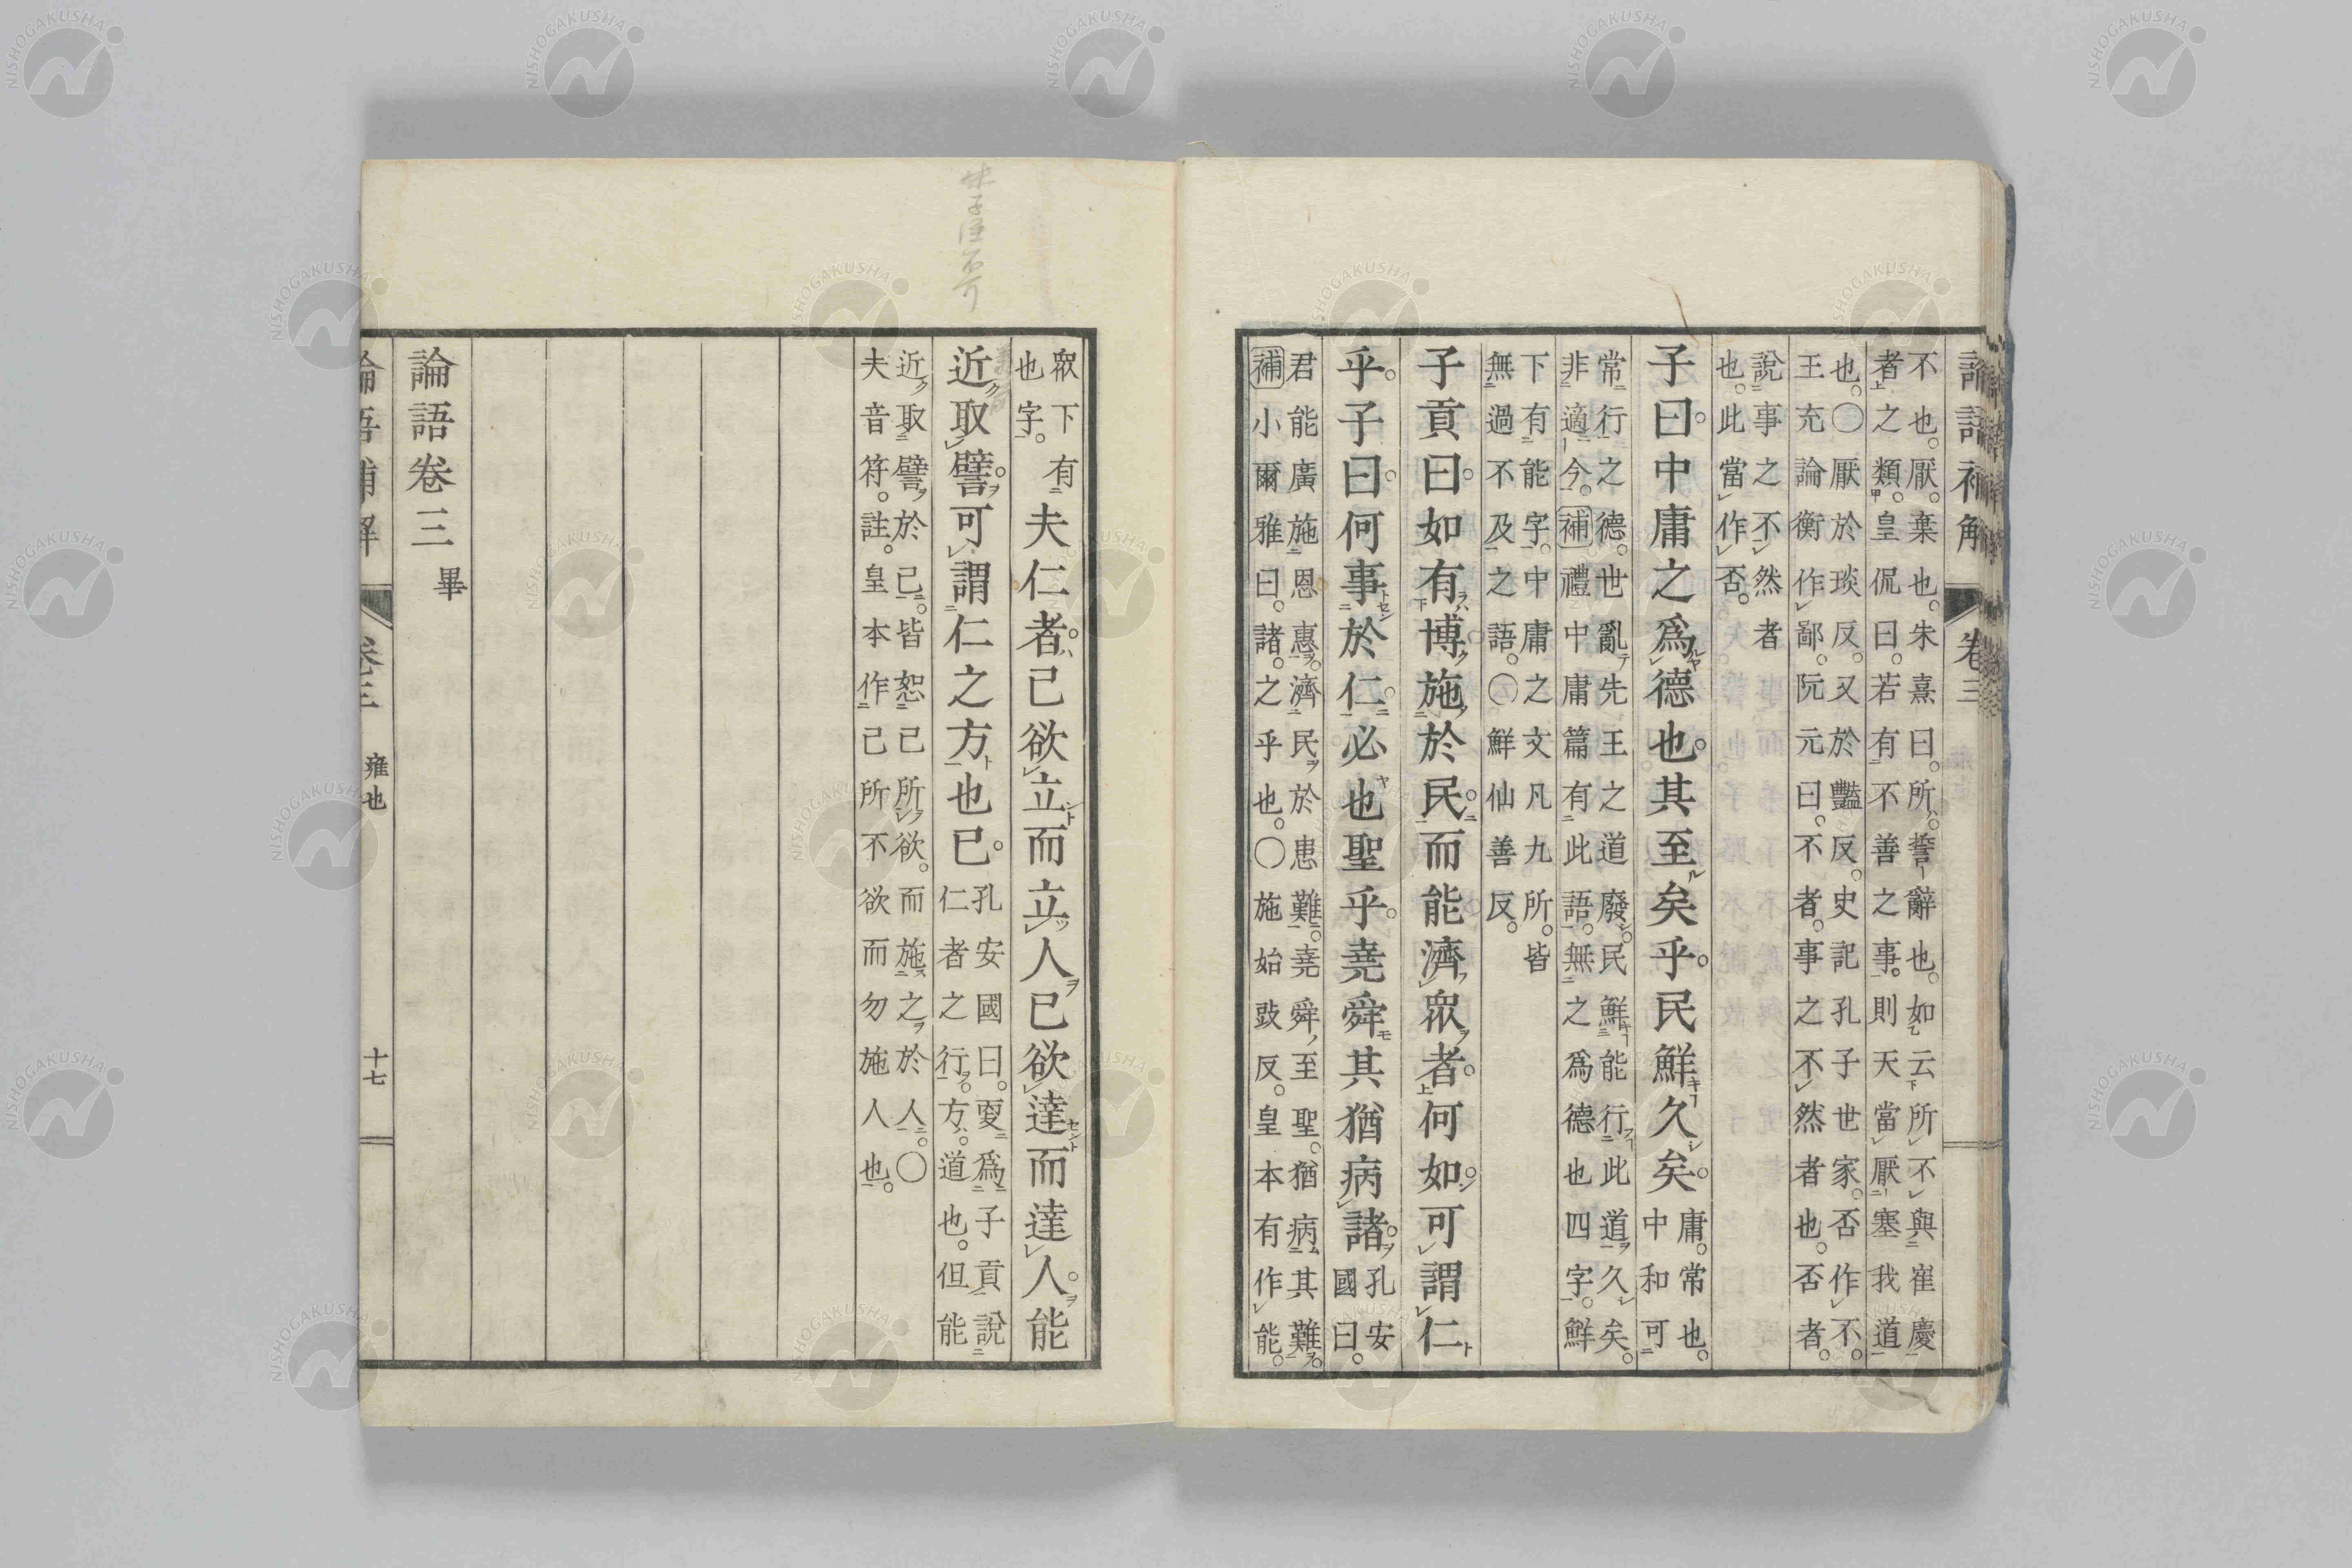 論語補解 卷三
不也。厭。棄也。朱熹曰。所。誓辭也。如云所不與崔慶
者之類。皇侃曰。若有不善之事。則天當厭塞我道
也。〇厭於琰反。又於豔反。史記孔子世家。否作不。
王充論衡作鄙。阮元曰。不者。事之不然者也。否者。
說事之不然者
也。此當作否。
子曰。中庸之爲德也。其至矣乎。民鮮久矣。
庸。常也。
中和可
常行之德。世亂先王之道廢。民鮮能行此道久矣。
非適今。補禮中庸篇有此語。無之爲德也四字。鮮
下有能字。中庸之文凡九所。皆
無過不及之語。〇鮮仙善反。
子貢曰。如有博施於民。而能濟衆者。何如。可謂仁
乎。子曰。何事於仁。必也聖乎。堯舜其猶病諸。
孔安
國曰。
君能廣施恩惠。濟民於患難。堯舜至聖。猶病其難。
補小爾雅曰。諸。之乎也。〇施始豉反。皇本有作能。
衆下有
也字。
夫仁者。己欲立而立人。己欲達而達人。能
近取譬。可謂仁之方也已。
孔安國曰。更爲子貢說
仁者之行。方。道也。但能
近取譬於己。皆恕己所欲。而施之於人。〇
夫音符。註。皇本作己所不欲而勿施人也。
論語卷三 畢
論語補解 卷三 雍也 十七